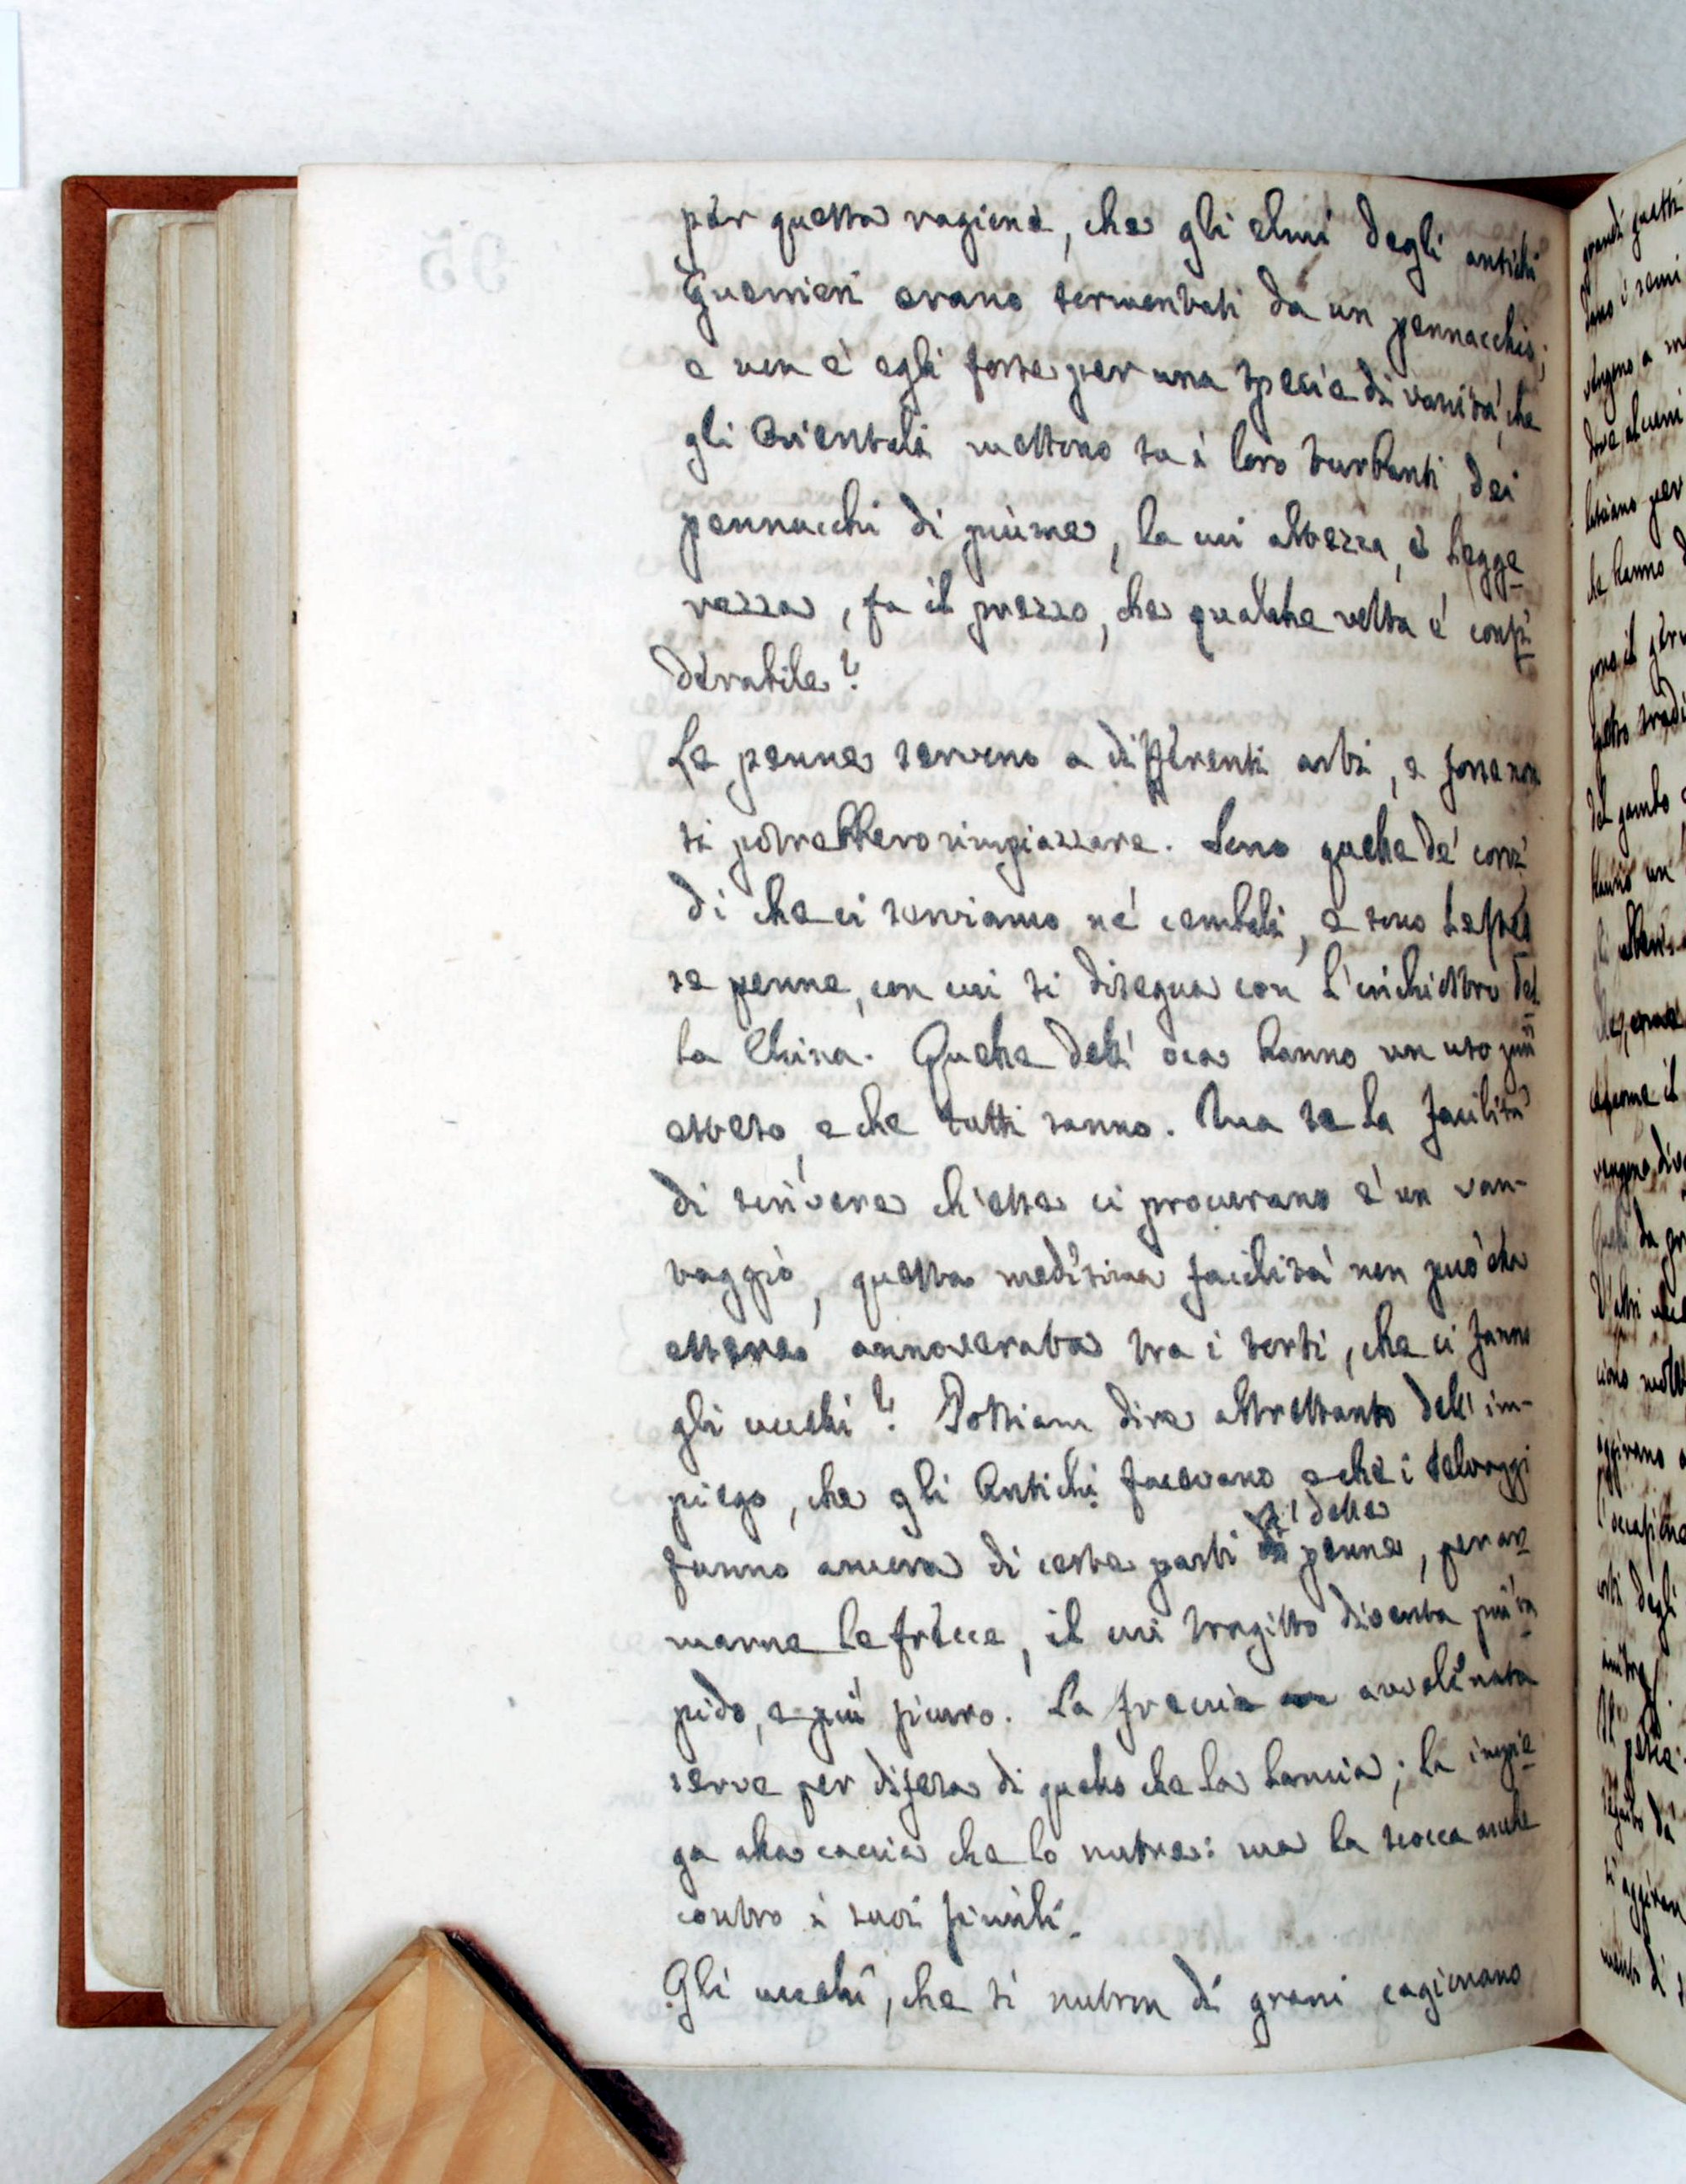 per questa ragione, che gli elmi degli antichi
Guerrieri erano sormontati da un pennacchio;
e non è egli forse per una specie di vanità, che
gli Orientali mettono su i loro turbanti dei
pennacchi di piume, la cui altezza, e legge-
rezza, fa il prezzo, che qualche volta è consi-
derabile?
Le penne servono a differenti arti, e forse non
si potrebbero rimpiazzare. Sono quelle de' corvi
di che ci serviamo ne' cembali, e sono le stes-
se penne, con cui si disegna con l'inchiostro del-
la China. Quelle dell' oca hanno un uso più
esteso, e che tutti sanno. Ma se la facilità
di scrivere ch'esse ci procurano è un van-
taggio, questa medisima facilità non può ella
essere annoverata tra i torti, che ci fanno
gli uccelli? Possiam dire altrettanto dell' im-
piego, che gli Antichi facevano, e che i selvaggi
fanno ancora di certe parti delle
penne, per ar-
marne le frecce, il cui tragitto diventa più ra-
pido, e più sicuro. La freccia avvelenata
serve per difesa di quello che la lancia; la impie-
ga alla caccia che lo nutre: ma la scocca anche
contro i suoi simili.
Gli uccelli, che si nutron di grani cagionano